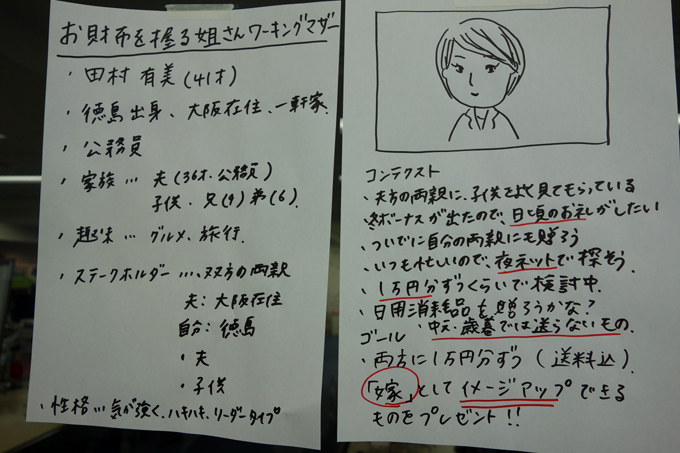 お財布を握る姐さんワーキングマザー
・田村 有美(41才)
・徳島出身、大阪在住、一軒家
・公務員
・家族… 夫(36才・公務員)
子供・兄(9) 弟(6)
・趣味… グルメ、旅行
・ステークホルダー…、双方の両親
夫:大阪在住
自分:徳島
・夫
・子供
・性格…気が強く、ハキハキ、リーダータイプ
コンテクスト
・夫方の両親に、子供をよく見てもらっている
・冬ボーナスが出たので、日頃のお礼がしたい
・ついでに自分の両親にも贈ろう
・いつも忙しいので、夜ネットで探そう
・1万円分ずつくらいで検討中
・日用消耗品を贈ろうかな?
・中元・歳暮では送らないもの
ゴール
・両方に1万円分ずつ(送料込)
「嫁」としてイメージアップできる
ものをプレゼント!!